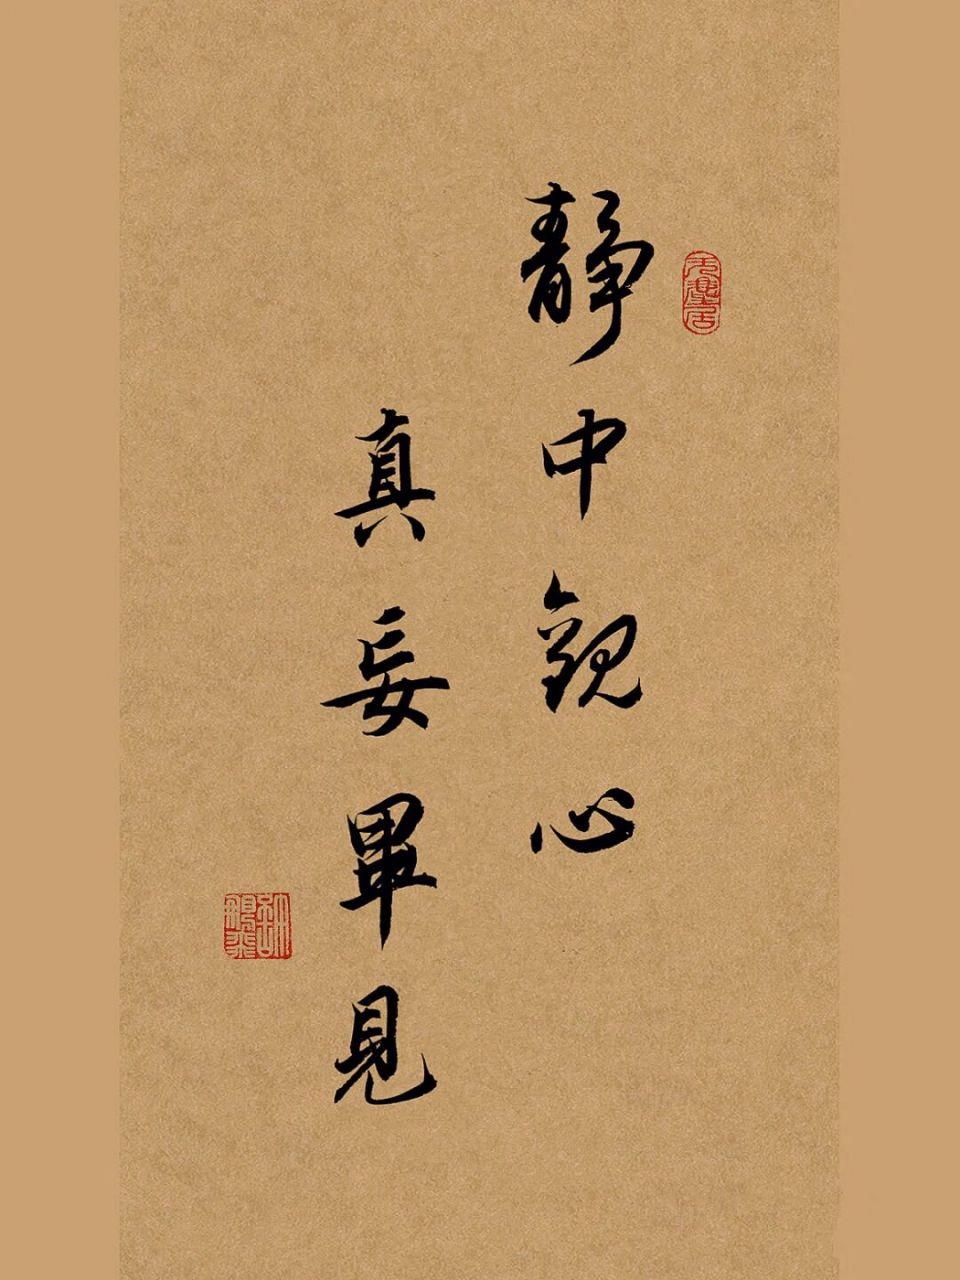 靜中觀心
真妄畢見